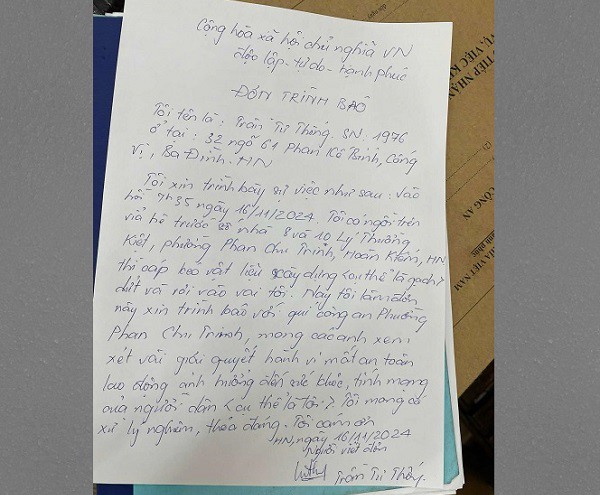 Cộng hòa xã hội chủ nghĩa VN
độc lập - tự do - hạnh phúc
ĐƠN TRÌNH BÁO
Tôi tên là : Trần Tử Thông. SN : 1976
ở tại : 32 ngõ 61 Phan Kế Bính, Cống
Vị, Ba Đình. HN
Tôi xin trình bày sự việc như sau : vào
hồi 7h35 ngày 16/11/2024. Tôi có ngồi trên
vỉa hè trước số nhà 8 và 10 Lý Thường
Kiệt, phường Phan Chu Trinh, Hoàn Kiếm, HN
thì cáp kéo vật liệu xây dựng <cụ thể là gạch>
đứt và rơi vào vai tôi. Nay tôi làm đơn
này xin trình báo với quí công an Phường
Phan Chu Trinh, mong các anh xem
xét và giải quyết hành vi mất an toàn
lao động ảnh hưởng đến sức khỏe, tính mạng
của người dân <cụ thể là tôi>. Tôi mong có
xử lý nghiêm, thỏa đáng. Tôi cám ơn
HN, ngày 16/11/2024
Người viết đơn
Trần Tử
TIẾP NHẬN
VIỆC
CÔNG AN
VIỆT NAM